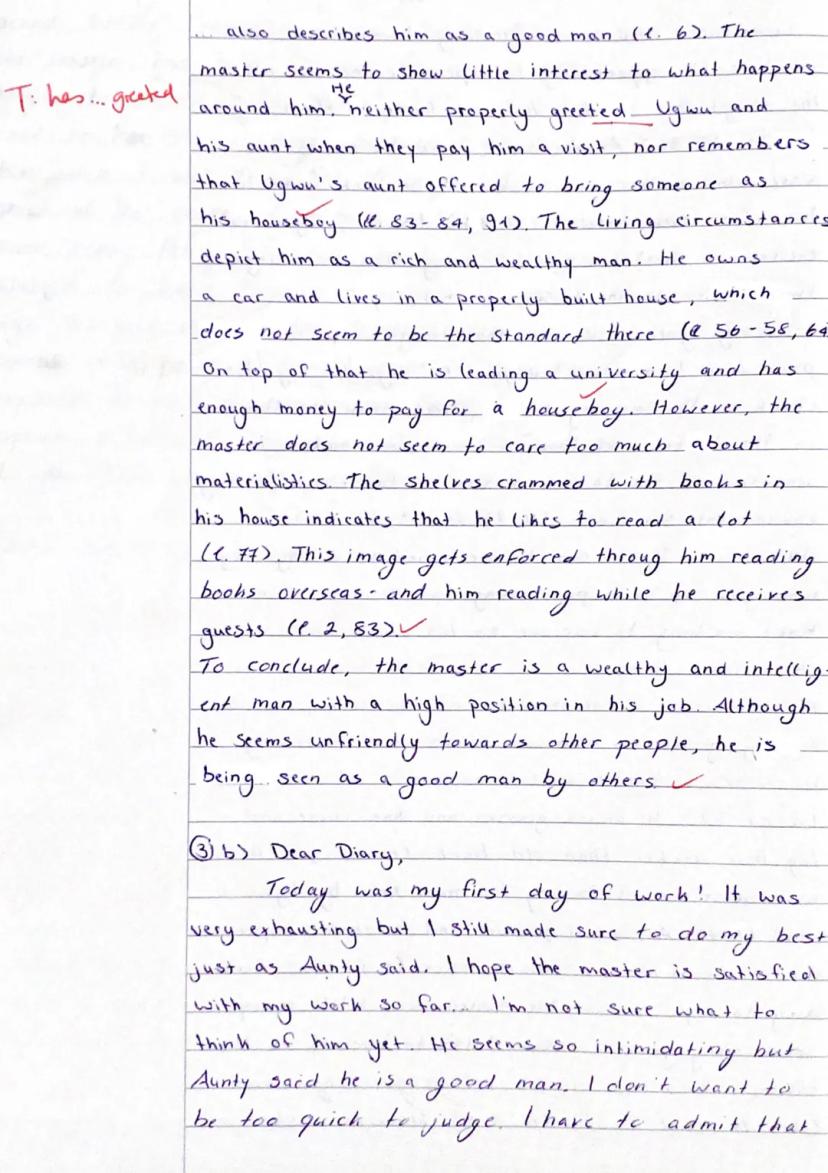 also describes him as a good man (l. 6). The
master seems to show little interest to what happens
T: has... greeted
around him. He neither properly greeted Ugwu and
his aunt when they pay him a visit, nor remembers
that Ugwu's aunt offered to bring someone as
his houseboy (ll. 83-84, 91). The living circumstances
depict him as a rich and wealthy man. He owns
a car and lives in a properly built house, which
does not seem to be the standard there (l 56-58, 64
On top of that he is leading a university and has
enough money to pay for a houseboy. However, the
master does not seem to care too much about
materialistics. The shelves crammed with books in
his house indicates that he likes to read a lot
(l. 77). This image gets enforced throug him reading
books overseas and him reading while he receives
guests (l. 2, 83).
To conclude, the master is a wealthy and intellig-
ent man with a high position in his job. Although
he seems unfriendly towards other people, he is
being seen as a good man by others.
3 b) Dear Diary,
Today was my first day of work! It was
very exhausting but I still made sure to do my best
just as Aunty said. I hope the master is satisfied
with my work so far. I'm not sure what to
think of him yet. He seems so intimidating but
Aunty said he is a good man. I don't want to
be too quick to judge. I have to admit that